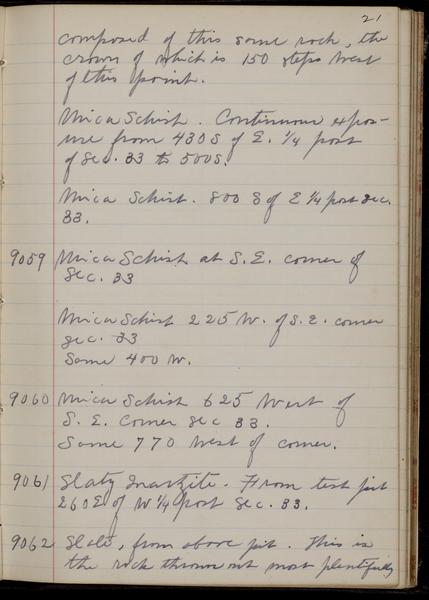 21
composed of this same rock, the
crown of which is 150 steps West
of this point.
Mica Schist. Continuous expos-
ure from 430 S of E. 1/4 post
of Sec. 33 to 500 S.
Mica Schist. 800 S of E 1/4 post Sec.
33.
9059 Mica Schist at S.E. corner of
Sec. 33
Mica Schist 225 W. of S.E. corner
Sec. 33
Same 400 W.
9060 Mica Schist 625 West of
S. E. Corner Sec 33.
Same 770 West of corner.
9061 Slaty Quartzite. From test pit
260 E of W 1/4 post Sec. 33.
9062 Slate, from above pit. This is
the rock thrown out most plentifully